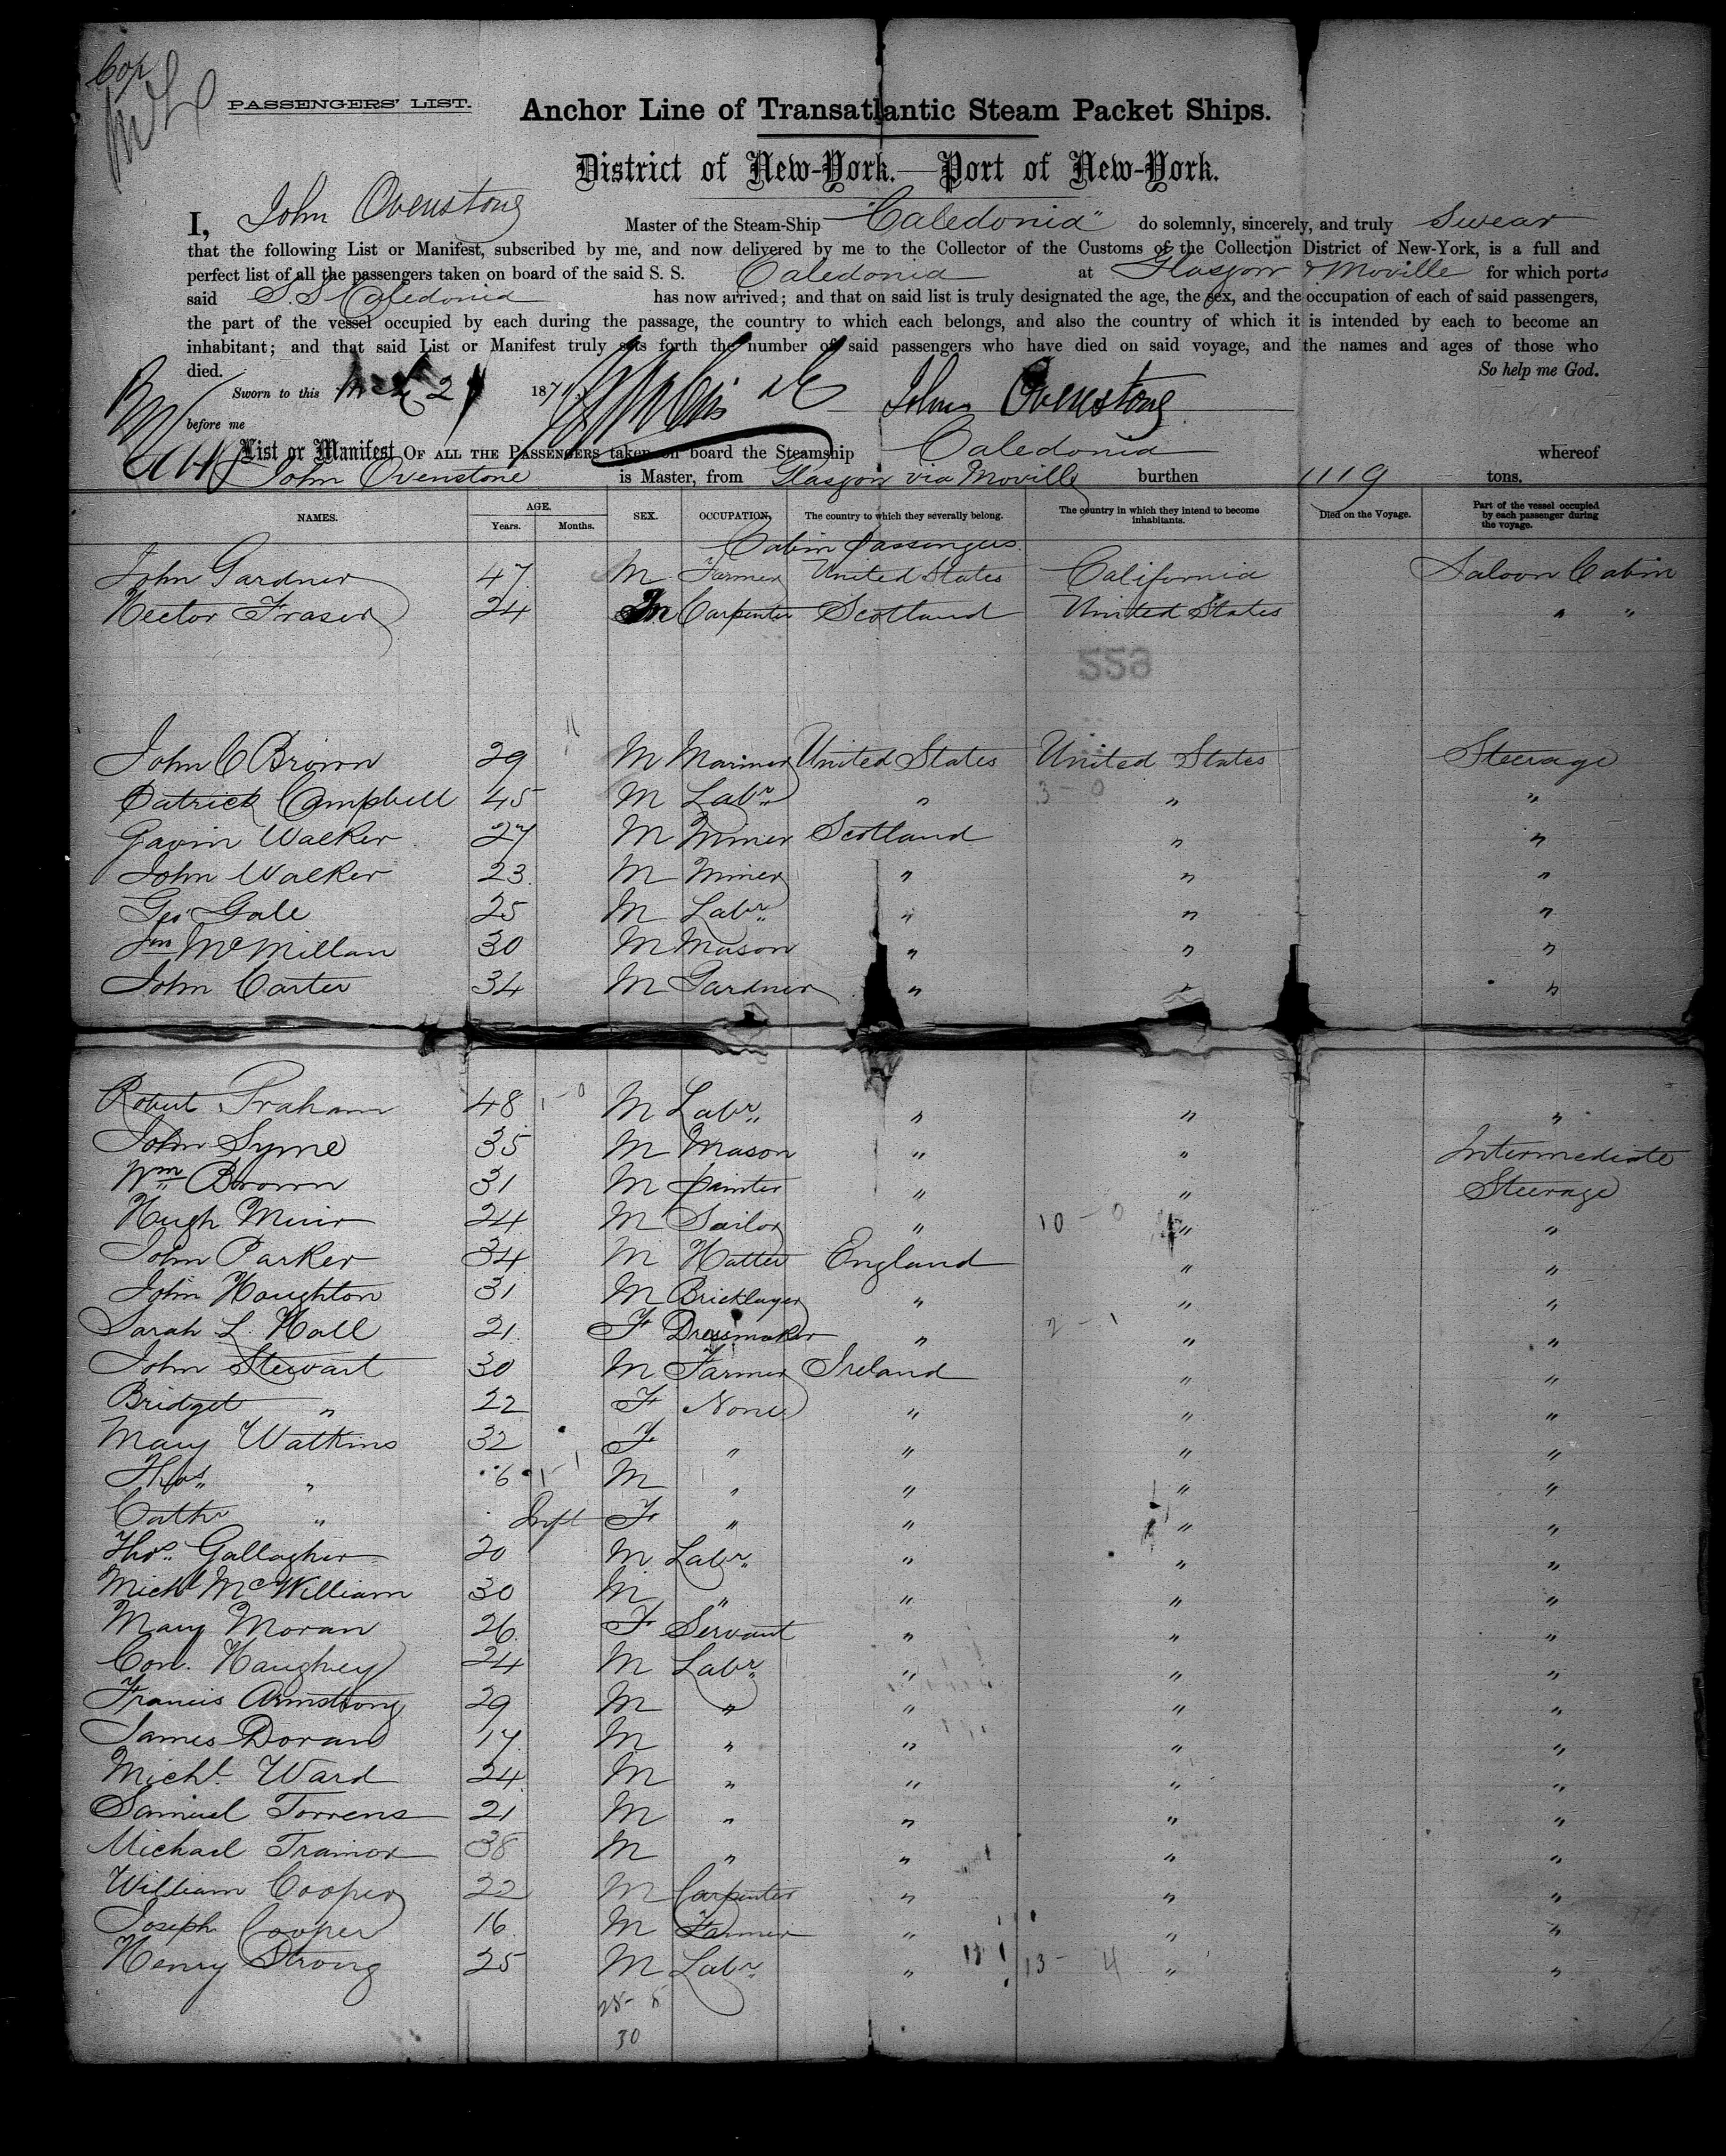 Cop
PASSENGERS' LIST.
Anchor Line of Transatlantic Steam Packet Ships.
District of New-York.—Port of New-York.
I, John Ovenstone Master of the Steam-Ship "Caledonia" do solemnly, sincerely, and truly Swear
that the following List or Manifest, subscribed by me, and now delivered by me to the Collector of the Customs of the Collection District of New-York, is a full and
perfect list of all the passengers taken on board of the said S. S. Caledonia at Glasgow & Moville for which ports
said S.S Caledonia has now arrived; and that on said list is truly designated the age, the sex, and the occupation of each of said passengers,
the part of the vessel occupied by each during the passage, the country to which each belongs, and also the country of which it is intended by each to become an
inhabitant; and that said List or Manifest truly sets forth the number of said passengers who have died on said voyage, and the names and ages of those who
died. So help me God.
Sworn to this 187 John Ovenstone
before me
List or Manifest OF ALL THE PASSENGERS taken on board the Steamship Caledonia whereof
John Ovenstone is Master, from Glasgow via Moville burthen 1119 tons.
NAMES. AGE. Years. Months. SEX. OCCUPATION. The country to which they severally belong. The country in which they intend to become inhabitants. Died on the Voyage. Part of the vessel occupied by each passenger during the voyage.
Cabin Passengers.
John Gardner 47 M Farmer United States California Saloon Cabin
Hector Fraser 24 M Carpenter Scotland United States " "
552
John C Brown 29 M Mariner United States United States Steerage
Patrick Campbell 45 M Labr " 3-0 " "
Gavin Walker 27 M Miner Scotland " "
John Walker 23 M Miner " " "
Geo Gale 25 M Labr " " "
Jn McMillan 30 M Mason " " "
John Carter 34 M Gardner " " "
Robert Graham 48 1-0 M Labr " " "
John Syme 35 M Mason " " Intermediate
Wm Brown 31 M Painter " " Steerage
Hugh Muir 24 M Sailor " 10-0 " "
John Parker 34 M Hatter England " "
John Houghton 31 M Bricklayer " " "
Sarah L. Hall 21 F Dressmaker " 2-1 " "
John Stewart 30 M Farmer Ireland " "
Bridget " 22 F None " " "
Mary Watkins 32 F " " " "
Thos " 6 1-1 M " " " "
Cathr " Inft F " " " "
Thos Gallagher 20 M Labr " " "
Michl McWilliam 30 M " " " "
Mary Moran 26 F Servant " " "
Con. Haughey 24 M Labr " " "
Francis Armstrong 29 M " " " "
James Doran 17 M " " " "
Michl. Ward 24 M " " " "
Samuel Torrens 21 M " " " "
Michael Trainor 38 M " " " "
William Cooper 22 M Carpenter " " "
Joseph Cooper 16 M Farmer " " "
Henry Strong 25 M Labr " 13-4 " "
30